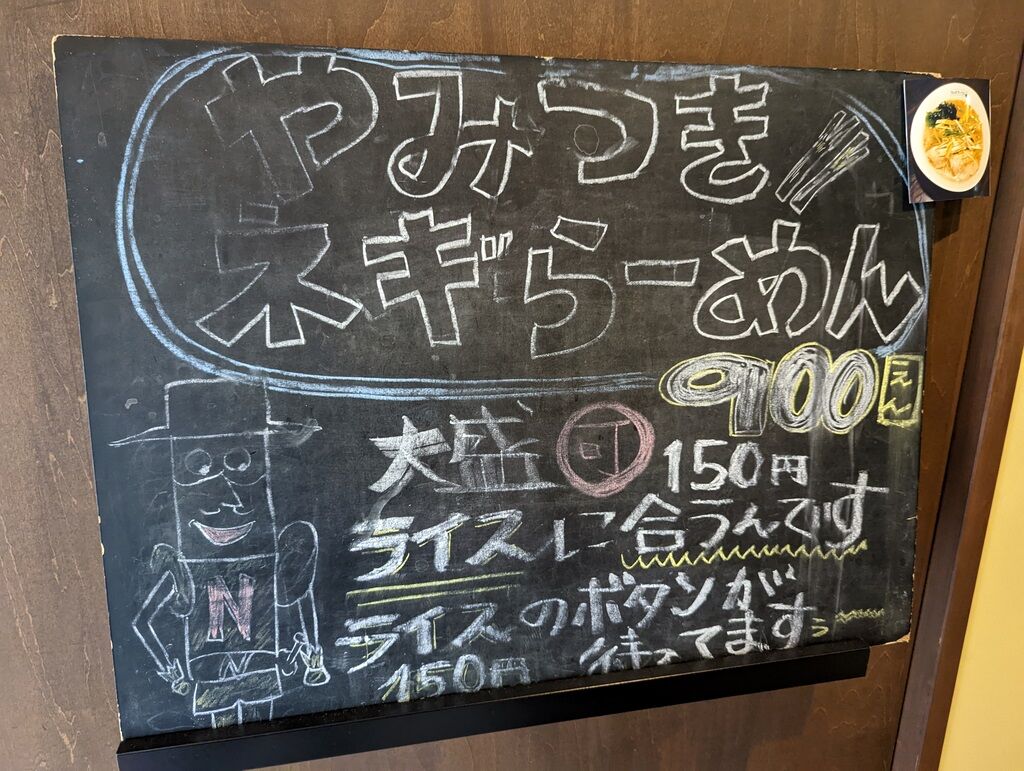 やみつき
ネギらーめん
900えん
大盛 可 150円
ライスに合うんです
ライスのボタンが
150円 待ってます
N
N